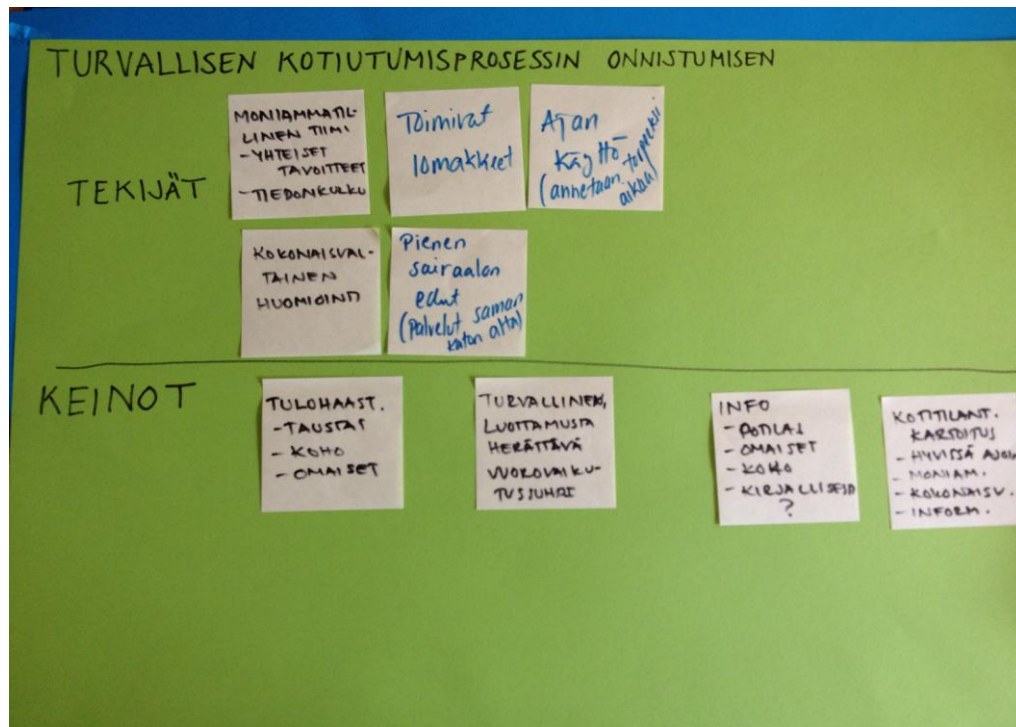 TURVALLISEN KOTIUTUMISPROSESSIN ONNISTUMISEN
TEKIJÄT
MONIAMMATIL-
LINEN TIIMI
- YHTEISET
TAVOITTEET
- TIEDONKULKU
Toimivat
lomakkeet
Ajan
käyttö
(annetaan tarpeeksi
aikaa)
KOKONAISVAL-
TAINEN
HUOMIOINTI
Pienen
sairaalan
edut
(Palvelut saman
katon alta)
KEINOT
TULOHAAST.
- TAUSTAT
- KOHO
- OMAISET
TURVALLINEN,
LUOTTAMUSTA
HERÄTTÄVÄ
VUOROVAIKU-
TUSSUHDE
INFO
- POTILAS
- OMAISET
- KOHO
- KIRJALLISESTI
?
KOTITILANT.
KARTOITUS
- HYVISSÄ AJOIN
- MONIAM.
- KOKONAISV.
- INFORM.